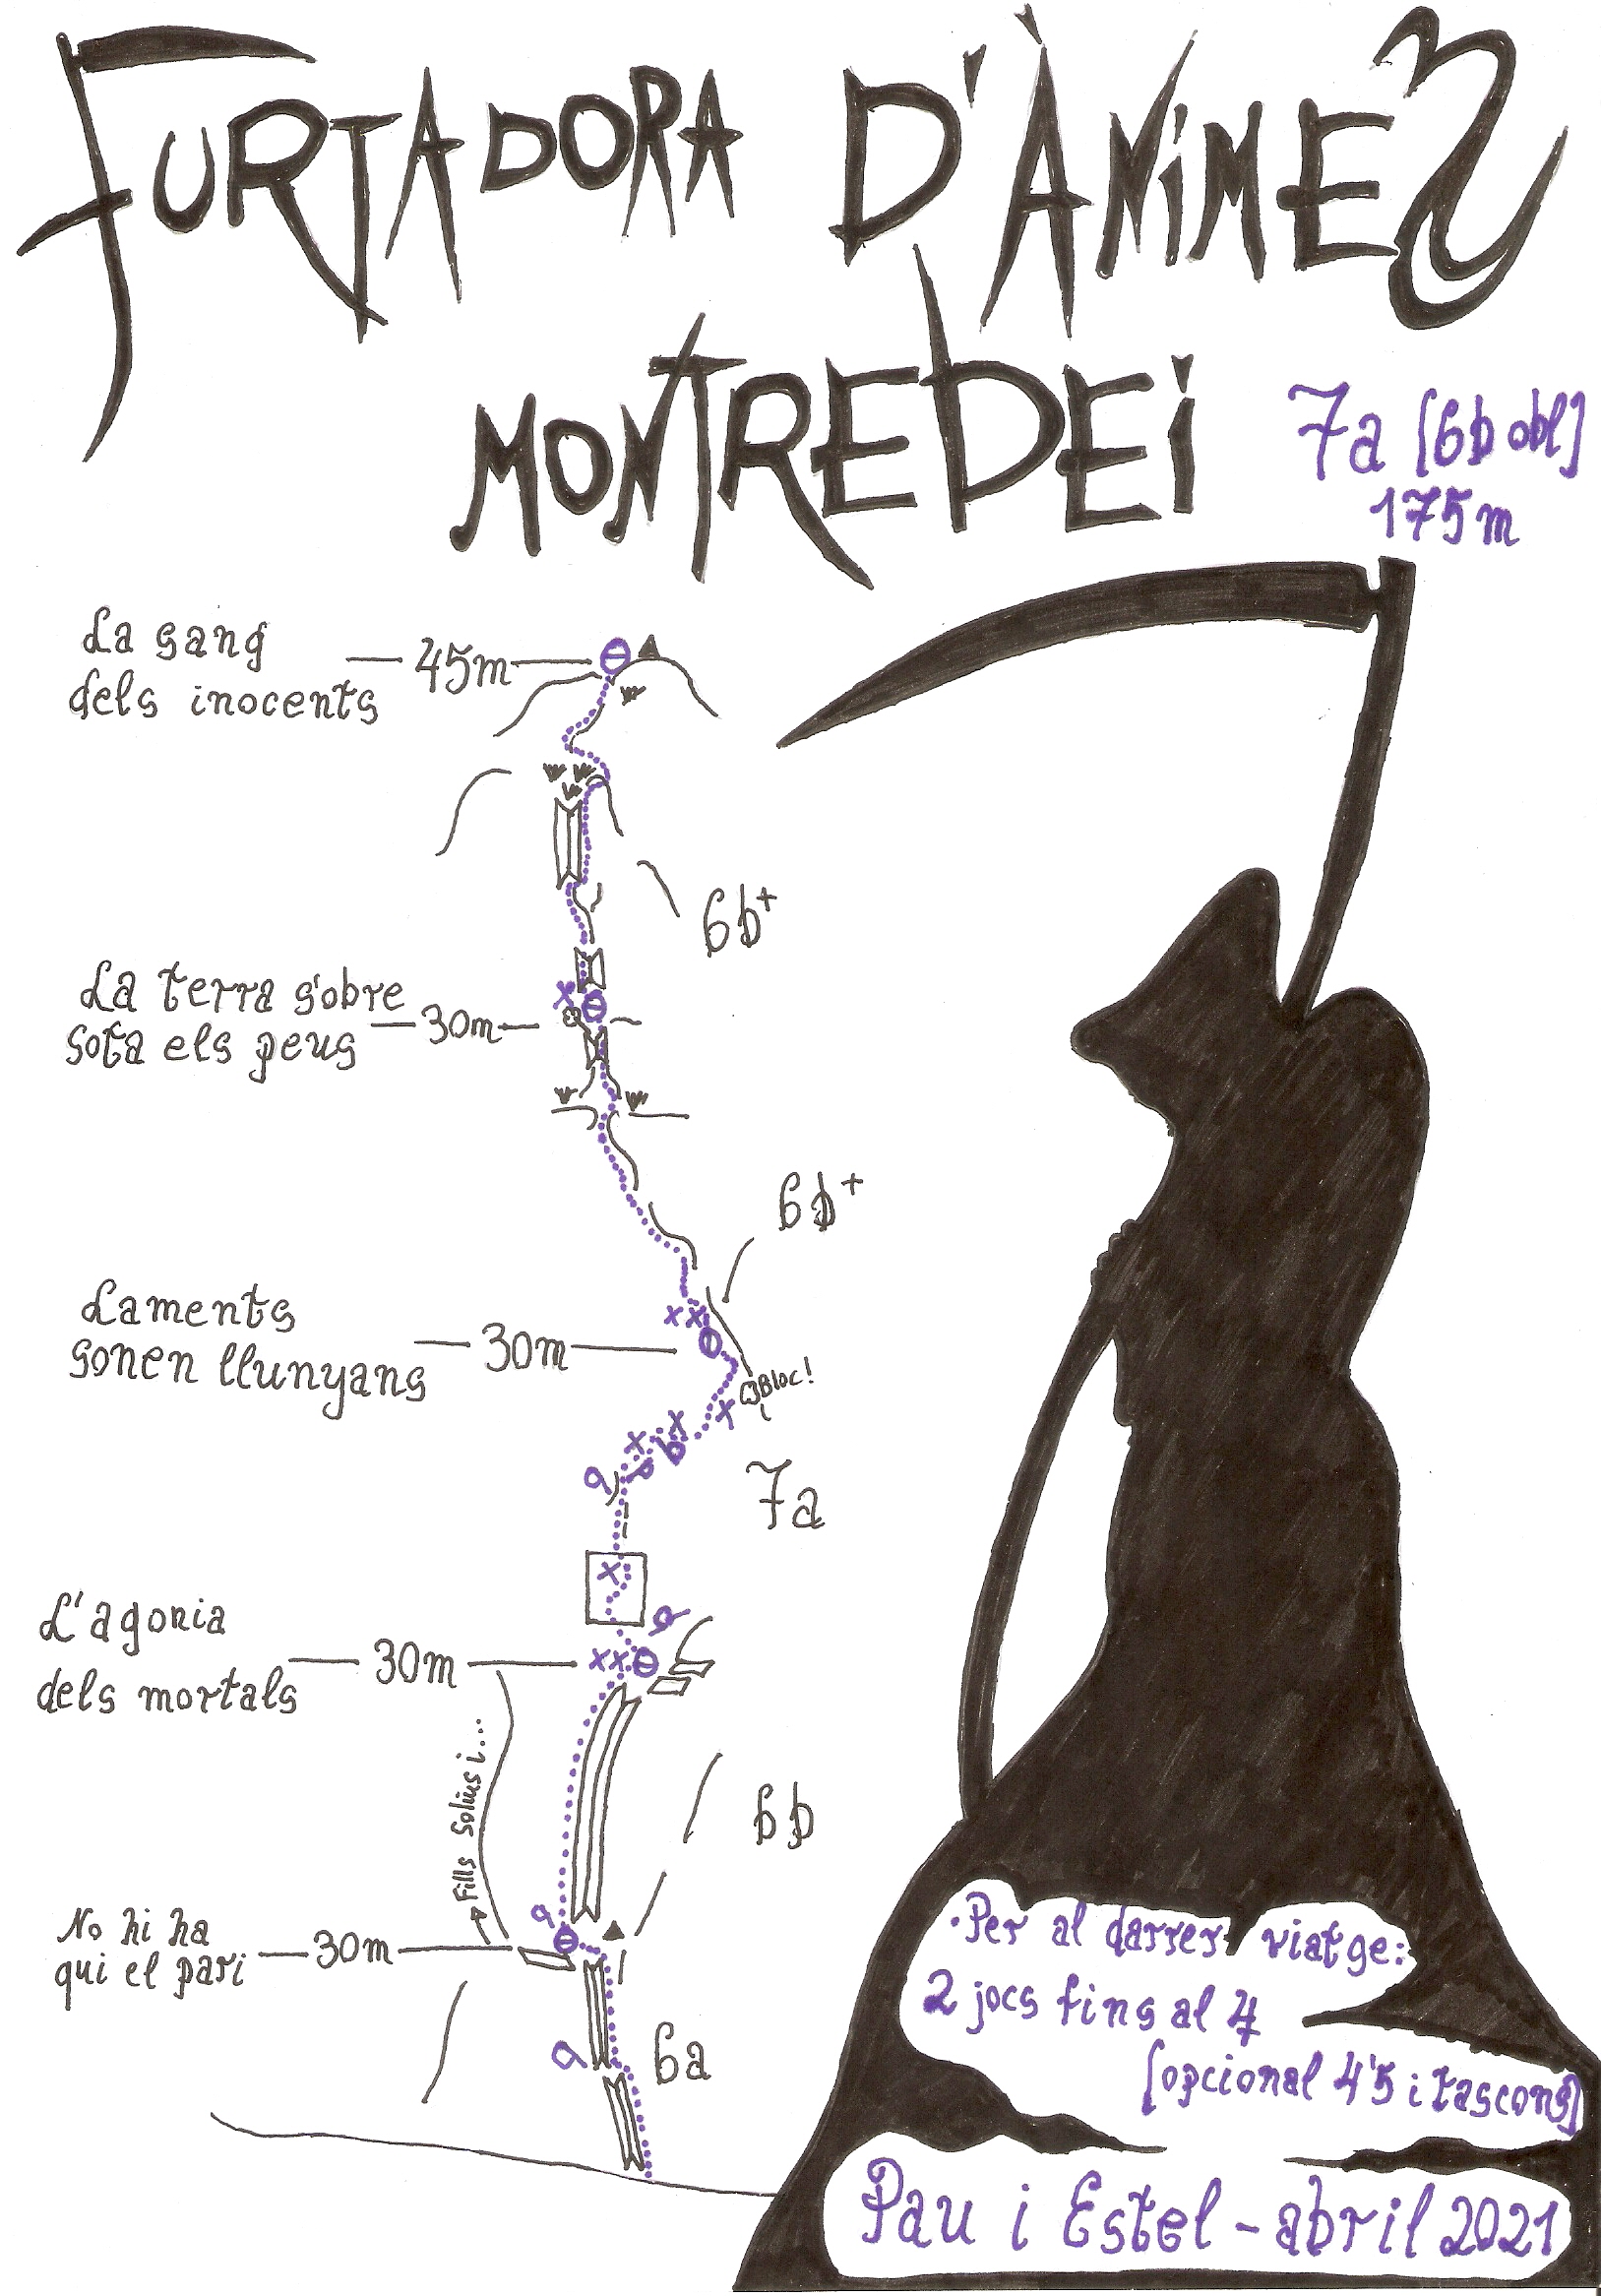 FURTADORA D'ÀNIMES
MONTREBEI
7a [6b obl]
175m
La sang
dels inocents
45m
6b+
La terra s'obre
sota els peus
30m
6b+
Laments
sonen llunyans
30m
Bloc!
7a
L'agonia
dels mortals
30m
Fills Solius i...
6b
No hi ha
qui el pari
30m
6a
·Per al darrer viatge:
2 jocs fins al 4
[opcional 4'5 i tascons]
Pau i Estel - abril 2021